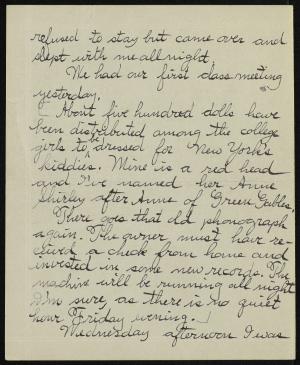 refused to stay but came over and
slept with me all night.
We had our first class meeting
yesterday.
[About five hundred dolls have
been distributed among the college
girls to be dressed for New York's
kiddies. Mine is a red head
and I've named her Anne
Shirley after Anne of Green Gables.
There goes that old phonograph
again. The owner must have re-
ceived a check from home and
invested in some new records. The
machine will be running all night
I'm sure, as there is no quiet
hour Friday evening.]
Wednesday afternoon I was